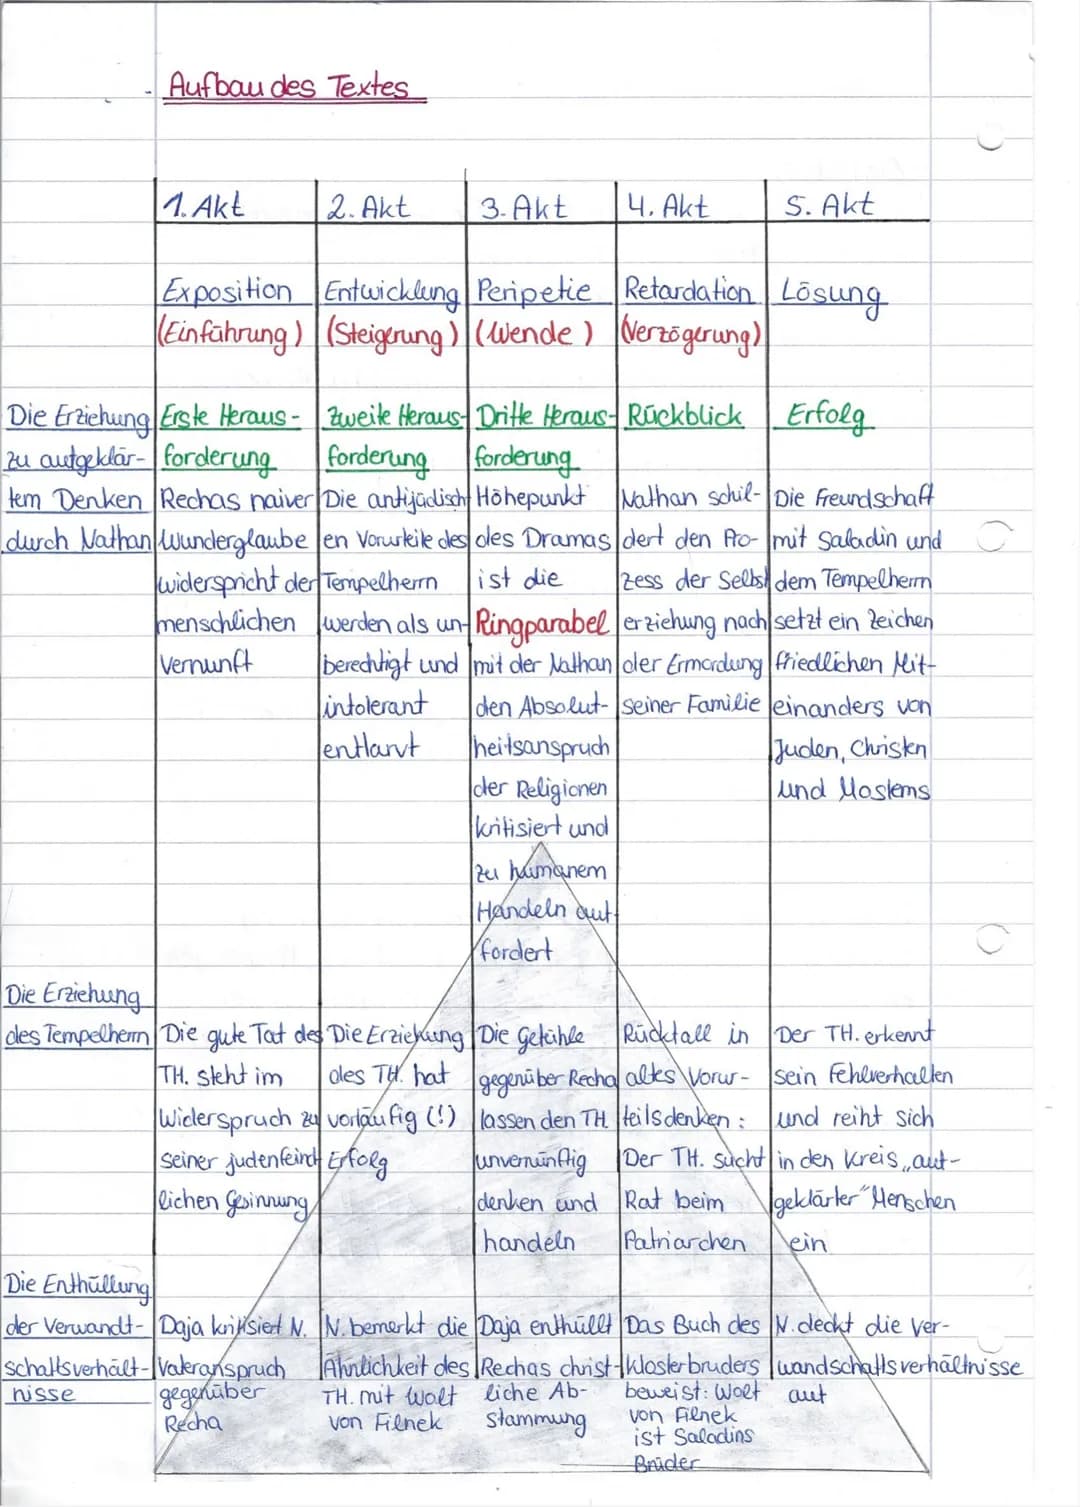 Aufbau des Textes
1. Akt 2. Akt 3. Akt 4. Akt 5. Akt
Exposition Entwicklung Peripetie Retardation Lösung
(Einführung) (Steigerung) (Wende) (Verzögerung)
Die Erziehung Erste Heraus- Zweite Heraus- Dritte Heraus- Rückblick Erfolg
zu aufgeklär- forderung forderung forderung
tem Denken Rechas naiver Die antijüdisch Höhepunkt Nathan schil- Die Freundschaft
durch Nathan Wunderglaube en Vorurteile des des Dramas dert den Pro- mit Saladin und
widerspricht der Tempelherrn ist die zess der Selbst dem Tempelherrn
menschlichen werden als un- Ringparabel erziehung nach setzt ein Zeichen
Vernunft berechtigt und mit der Nathan der Ermordung friedlichen Mit-
intolerant den Absolut- seiner Familie einanders von
entlarvt heitsanspruch Juden, Christen
der Religionen und Moslems
kritisiert und
zu humanem
Handeln auf-
fordert
Die Erziehung
des Tempelherrn Die gute Tat des Die Erziehung Die Gefühle Rückfall in Der TH. erkennt
TH. steht im des TH. hat gegenüber Recha altes Vorur- sein Fehlverhalten
Widerspruch zu vorläufig (!) lassen den TH. teilsdenken: und reiht sich
seiner judenfeind Erfolg unvernünftig Der TH. sucht in den Kreis „auf-
lichen Gesinnung denken und Rat beim geklärter“ Menschen
handeln Patriarchen ein
Die Enthüllung
der Verwandt- Daja kritisiert N. N. bemerkt die Daja enthüllt Das Buch des N. deckt die Ver-
schaftsverhält- Vateranspruch Ähnlichkeit des Rechas christ- Klosterbruders wandschaftsverhältnisse
nisse gegenüber TH. mit Wolf liche Ab- beweist: Wolf auf
Recha von Filnek stammung von Filnek
ist Saladins
Bruder